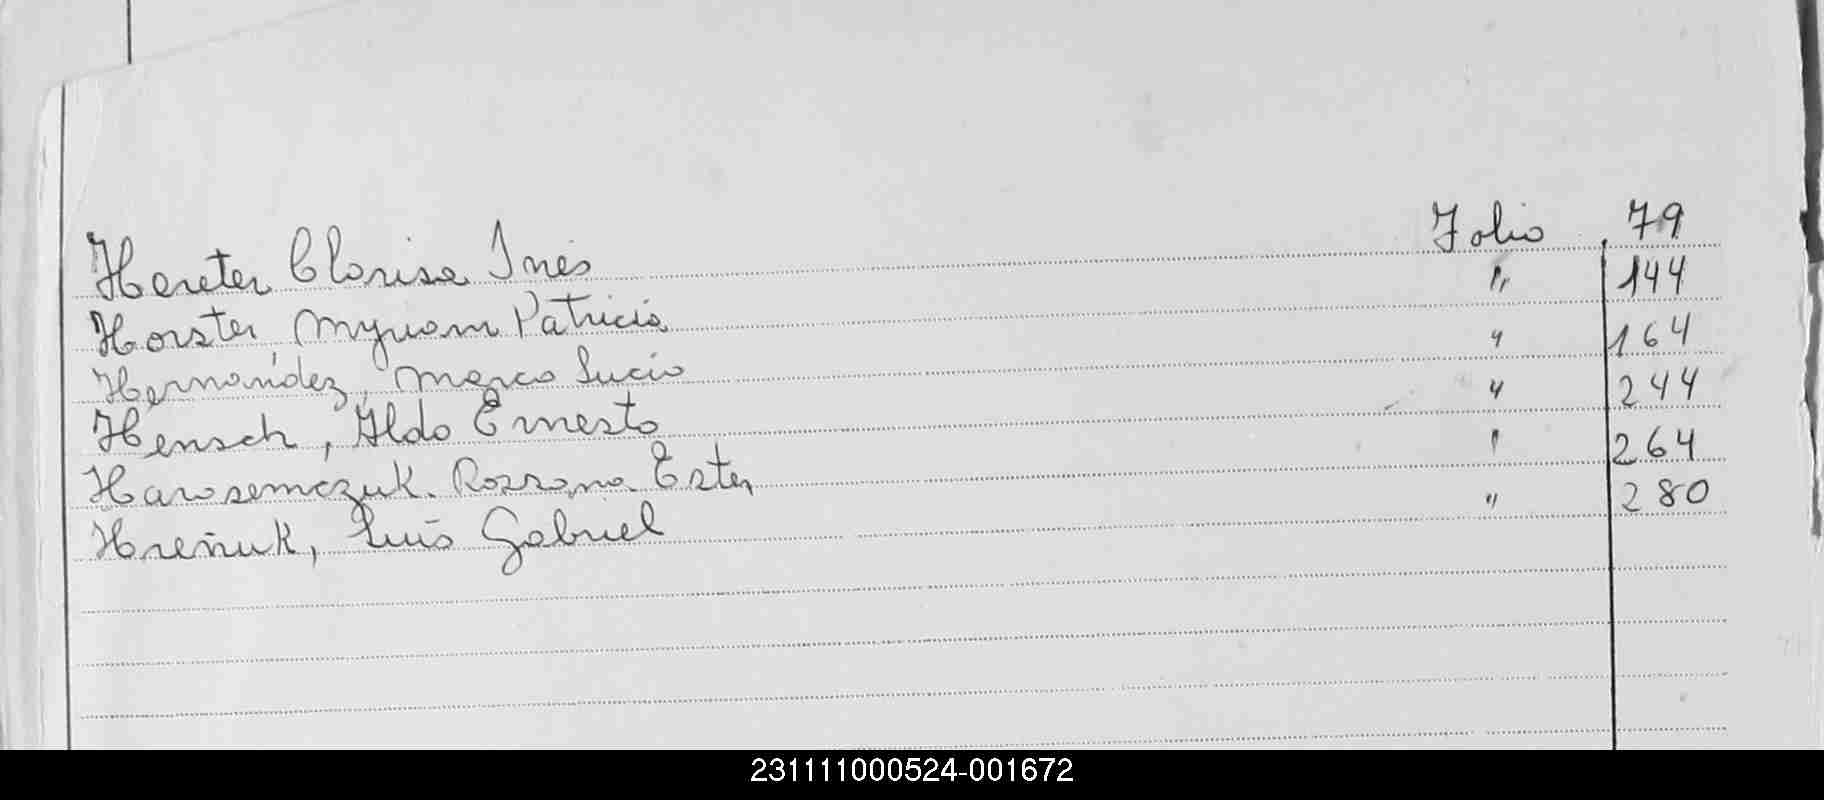 Hereter Clorisa Inés Folio 79
Horster, Myriam Patricia " 144
Hernández, Marco Lucio " 164
Hensch, Aldo Ernesto " 244
Harosemczuk. Rossana Ester " 264
Hreñuk, Luis Gabriel " 280
231111000524-001672